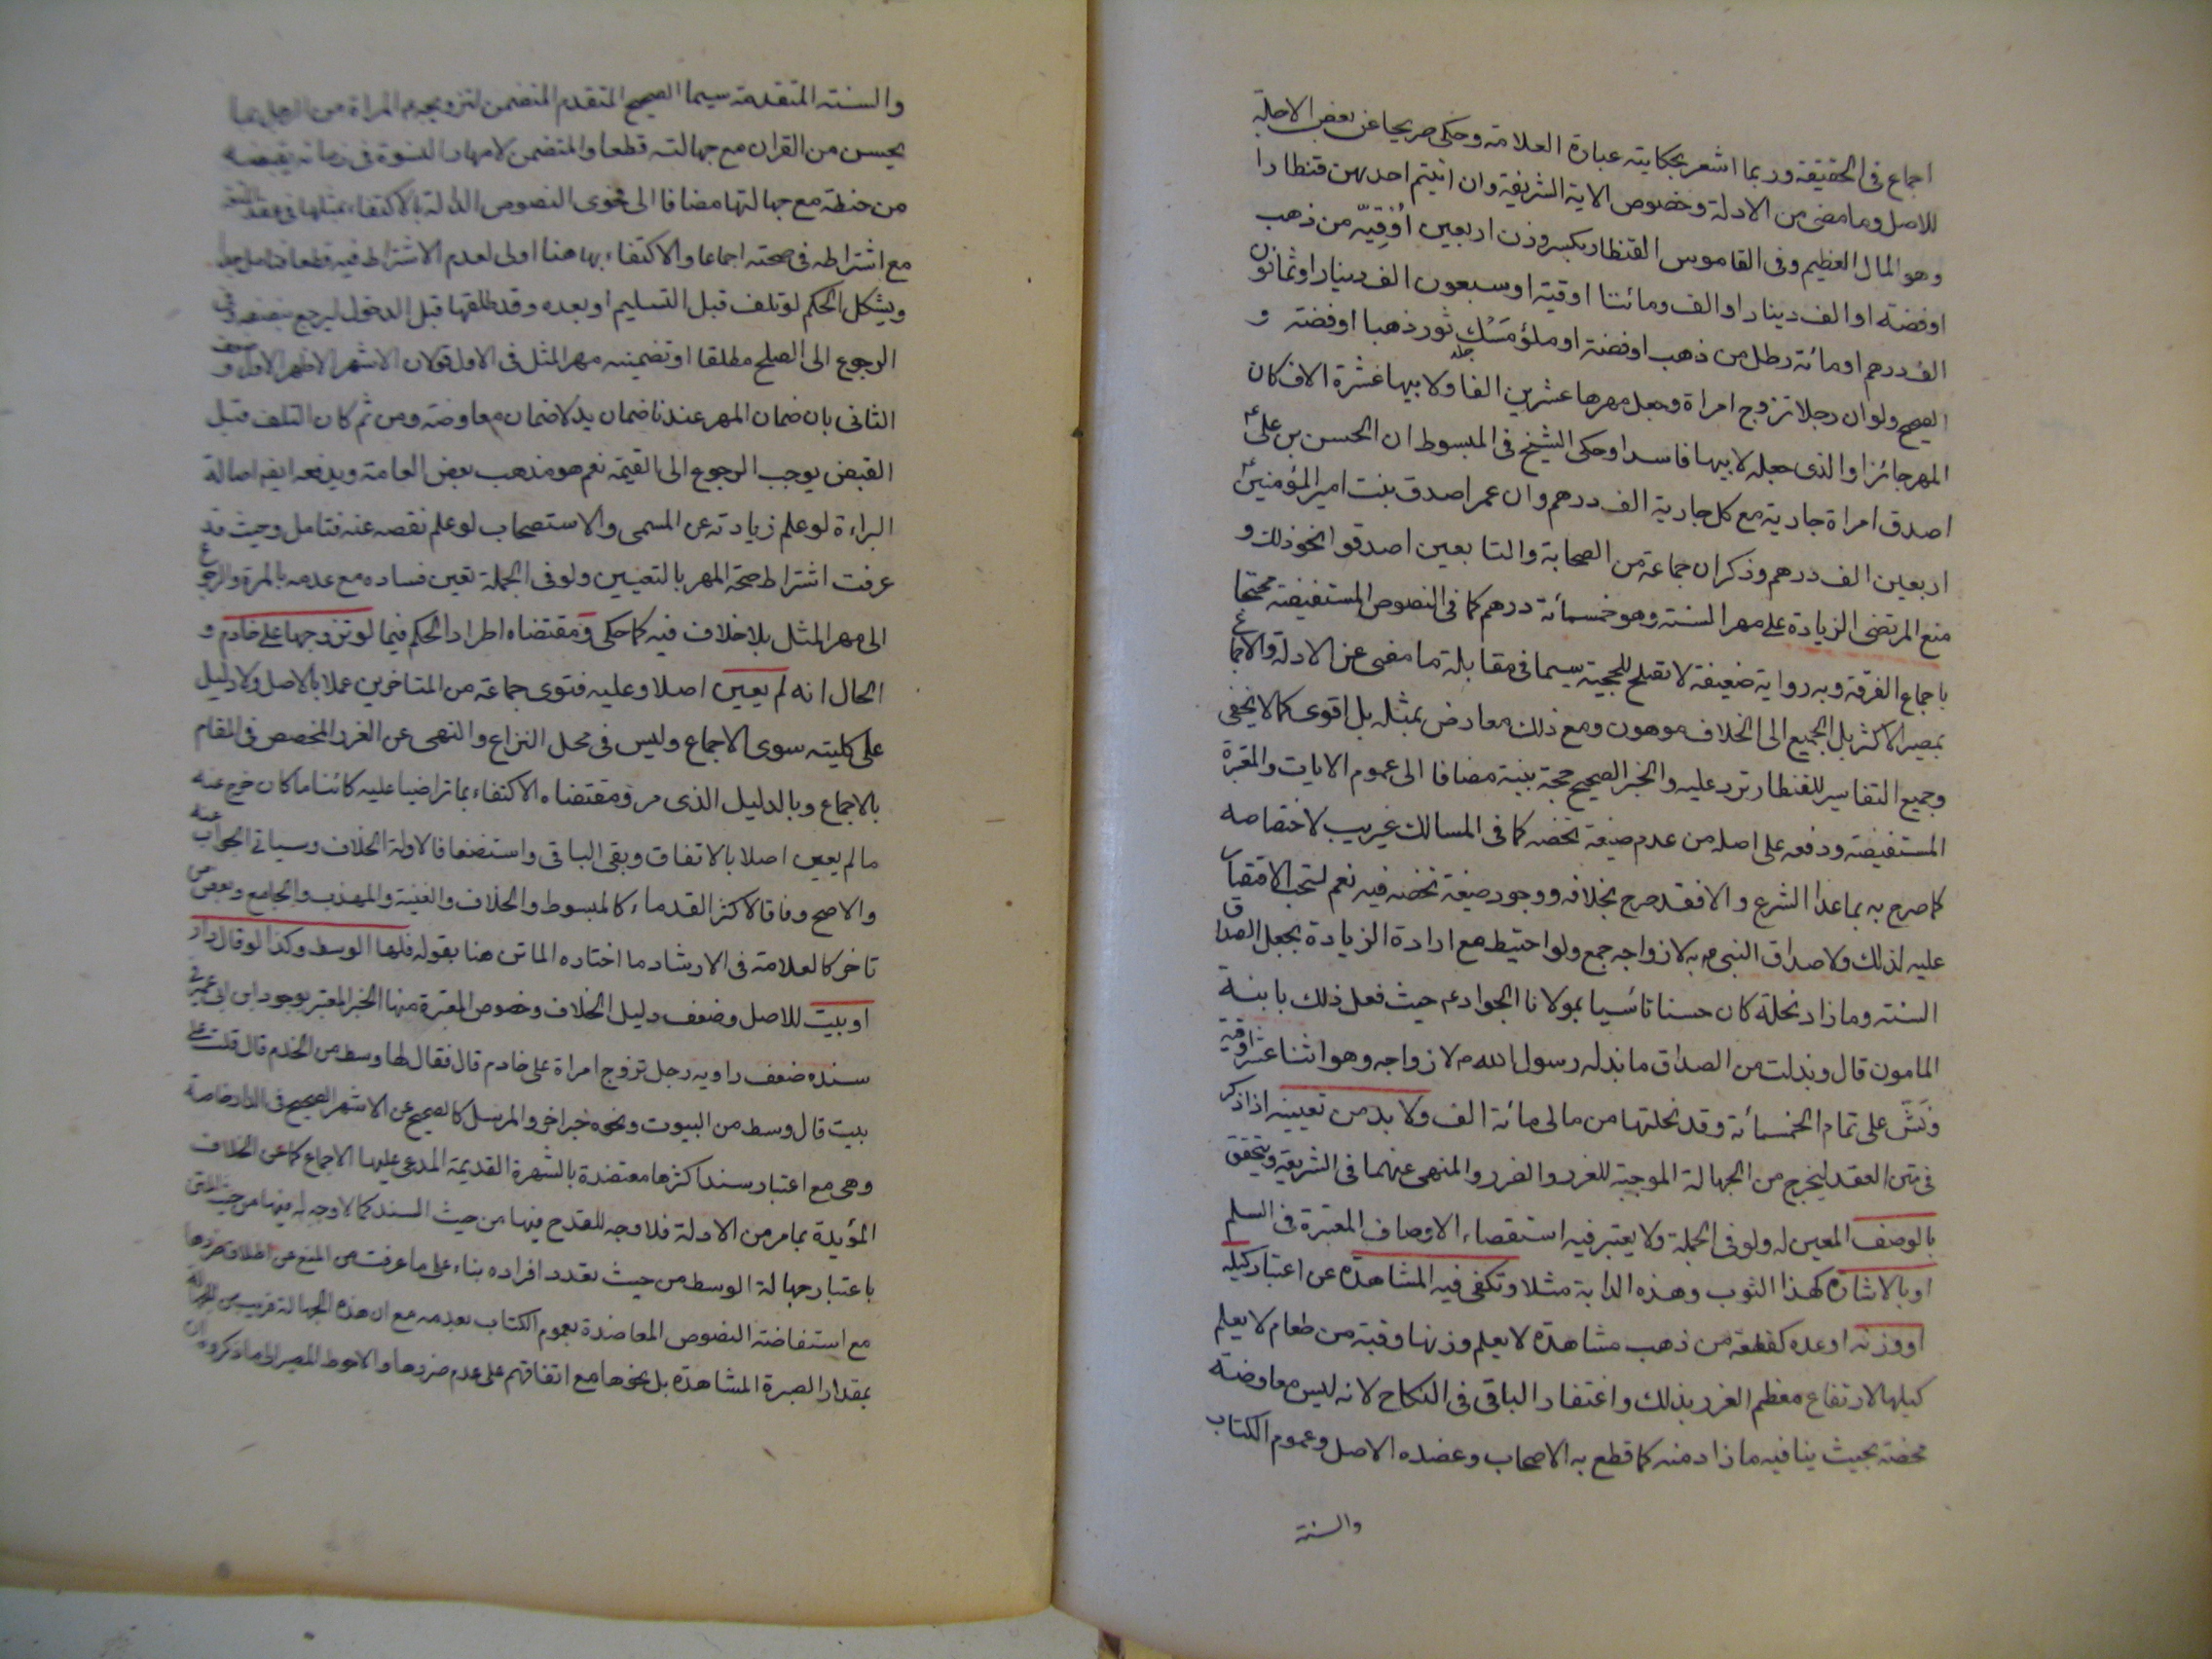 اجماع فى الحقيقة وربما اشعر بحكايته عبارة العلامة وحكى صريحا عن بعض الاجلة
للاصل وما مضى من الادلة وخصوص الاية الشريفة وان اتيتم احديهن قنطارا
وهو المال العظيم وفى القاموس القنطار بكسر وزن اربعين اُوقِيّه من ذهب
اوفضة او الف دينار او الف ومائتا اوقية او سبعون الف دينار او ثمانون
الف درهم او مائة رطل من ذهب اوفضة او ملؤ مَسْك ثور ذهبا اوفضة و
الصحيح ولو ان رجلا تزوج امراة وجعل مهرها عشرين الفا ولابيها عشرة الاف كان
المهر جائزا والذى جعله لابيها فاسدا وحكى الشيخ فى المبسوط ان الحسن بن على ع
اصدق امراة جارية مع كل جارية الف درهم وان عمر اصدق بنت امير المؤمنين ع
اربعين الف درهم وذكر ان جماعة من الصحابة والتابعين اصدقوا نحو ذلك و
منع المرتضى الزيادة على مهر السنة وهو خمسمائة درهم كما فى النصوص المستفيضة محتجا
باجماع الفرقة وبه رواية ضعيفة لا تصلح للحجية سيما فى مقابلة ما مضى عن الادلة والاجماع
بمصير الاكثر بل الجميع الى الخلاف موهون ومع ذلك معارض بمثله بل اقوى كما لا يخفى
وجميع التفاسير للقنطار ترد عليه والخبر الصحيح حجة بينة مضافا الى عموم الايات والمعتبرة
المستفيضة ودفعه على اصله من عدم صيغة تخصه كما فى المسالك غريب لاختصاصه
كما صرح به بما عدا الشرع والا فقد صرح بخلافه ووجود صيغة تخصه فيه نعم يستحب الاقتصار
عليه لذلك ولاصداق النبى ص به لازواجه جمع ولو احتيط مع ارادة الزيادة بجعل الصداق
السنة وما زاد نحلة كان حسنا تأسيا بمولانا الجواد ع حيث فعل ذلك بابنة
المامون قال وبذلت من الصداق ما بذله رسول الله ص لازواجه وهو اثنا عشر اوقية
ونَشّ على تمام الخمسمائة وقد نحلتها من مالى مائة الف ولا بد من تعيينه اذا ذكر
فى متن العقد ليخرج من الجهالة الموجبة للغرر والضرر والمنهى عنهما فى الشريعة ويتحقق
بالوصف المعين له ولو فى الجملة ولا يعتبر فيه استقصاء الاوصاف المعتبرة فى السلم
او بالاشارة كهذا الثوب وهذه الدابة مثلا وتكفى فيه المشاهدة عن اعتبار كيله
او وزنه او عده كقطعة من ذهب مشاهدة لا يعلم وزنها وقبة من طعام لا يعلم
كيلها لارتفاع معظم الغرر بذلك واغتفار الباقى فى النكاح لانه ليس معاوضة
محضة بحيث ينافيه ما زاد منه كما قطع به الاصحاب وعضده الاصل وعموم الكتاب
والسنة
والسنة المتقدمة سيما الصحيح المتقدم المتضمن لتزويجه ص المراة من الرجل بما
يحسن من القران مع جهالته قطعا والمتضمن لامهار النسوة فى زمانه بقبضة
من حنطة مع جهالتها مضافا الى فحوى النصوص الدالة بالاكتفاء بمثلها فى عقد المتعة
مع اشتراطه فى صحته اجماعا والاكتفاء بها هنا اولى لعدم الاشتراط فيه قطعا فتامل جدا
ويشكل الحكم لو تلف قبل التسليم او بعده وقد طلقها قبل الدخول ليرجع بنصفه وفى
الرجوع الى الصلح مطلقا او تضمينه مهر المثل فى الاول قولان الاشهر الاظهر الاول وضعف
الثانى بان ضمان المهر عندنا ضمان يد لا ضمان معاوضة ومن ثم كان التلف قبل
القبض يوجب الرجوع الى القيمة نعم هو مذهب بعض العامة ويدفعه ايضا اصالة
البراءة لو علم زيادته عن المسمى والاستصحاب لو علم نقصه عنه فتامل وحيث قد
عرفت اشتراط صحة المهر بالتعيين ولو فى الجملة تعين فساده مع عدمه بالمرة والرجوع
الى مهر المثل بلا خلاف فيه كما حكى ومقتضاه اطراد الحكم فيما لو تزوجها على خادم و
الحال انه لم يعين اصلا وعليه فتوى جماعة من المتاخرين عملا بالاصل ولا دليل
على كليته سوى الاجماع وليس فى محل النزاع والنهى عن الغرر المخصص فى المقام
بالاجماع وبالدليل الذى مر ومقتضاه الاكتفاء بما تراضيا عليه كائنا ما كان خرج عنه
ما لم يعين اصلا بالاتفاق وبقى الباقى واستضعافا لادلة الخلاف وسياتى الجواب عنه
والاصح وفاقا لاكثر القدماء كالمبسوط والخلاف والغنية والمهذب والجامع وبعض من
تاخر كالعلامة فى الارشاد ما اختاره الماتن هنا بقوله فلها الوسط وكذا لو قال دار
او بيت للاصل وضعف دليل الخلاف وخصوص المعتبرة منها الخبر المعتبر بوجود ابن ابى عمير فى
سنده ضعف راويه رجل تزوج امراة على خادم قال فقال لها وسط من الخدم قال قلت على
بيت قال وسط من البيوت ونحوه خبر اخر والمرسل كالصحيح عن الاشهر الصحيح فى الدار خاصة
وهى مع اعتبار سند اكثرها معتضدة بالشهرة القديمة المدعى عليها الاجماع كما عن الخلاف
المؤيدة بما مر من الادلة فلا وجه للقدح فيها من حيث السند كما لا وجه له فيها من حيث المتن
باعتبار جهالة الوسط من حيث تعدد افراده بناء على ما عرفت من المنع عن اطلاق ضررها
مع استفاضة النصوص المعاضدة بعموم الكتاب بعدمه مع ان هذه الجهالة قريب من الجهالة
بمقدار الصبرة المشاهدة بل نحوها مع اتفاقهم على عدم ضررها والاحوط المصير الى ما ذكروه